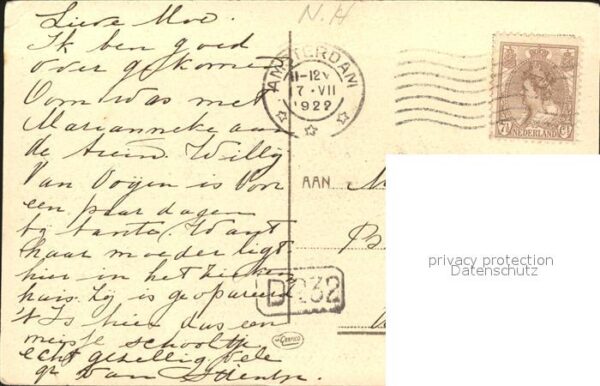 Lieve Moe.
Ik ben goed
over gekomen
Oom was met
Marianneke aan
de trein. Willy
van Ooyen is voor
een paar dagen
bij tante. Want
haar moeder ligt
hier in het zieken
huis. Zij is geopareerd
't Is hier dus een
echt gezellig
gr van
N.H
AMSTERDAM
11-12V
17.VII
1922
7½ Ct
NEDERLAND
AAN
D 232
privacy protection
Datenschutz